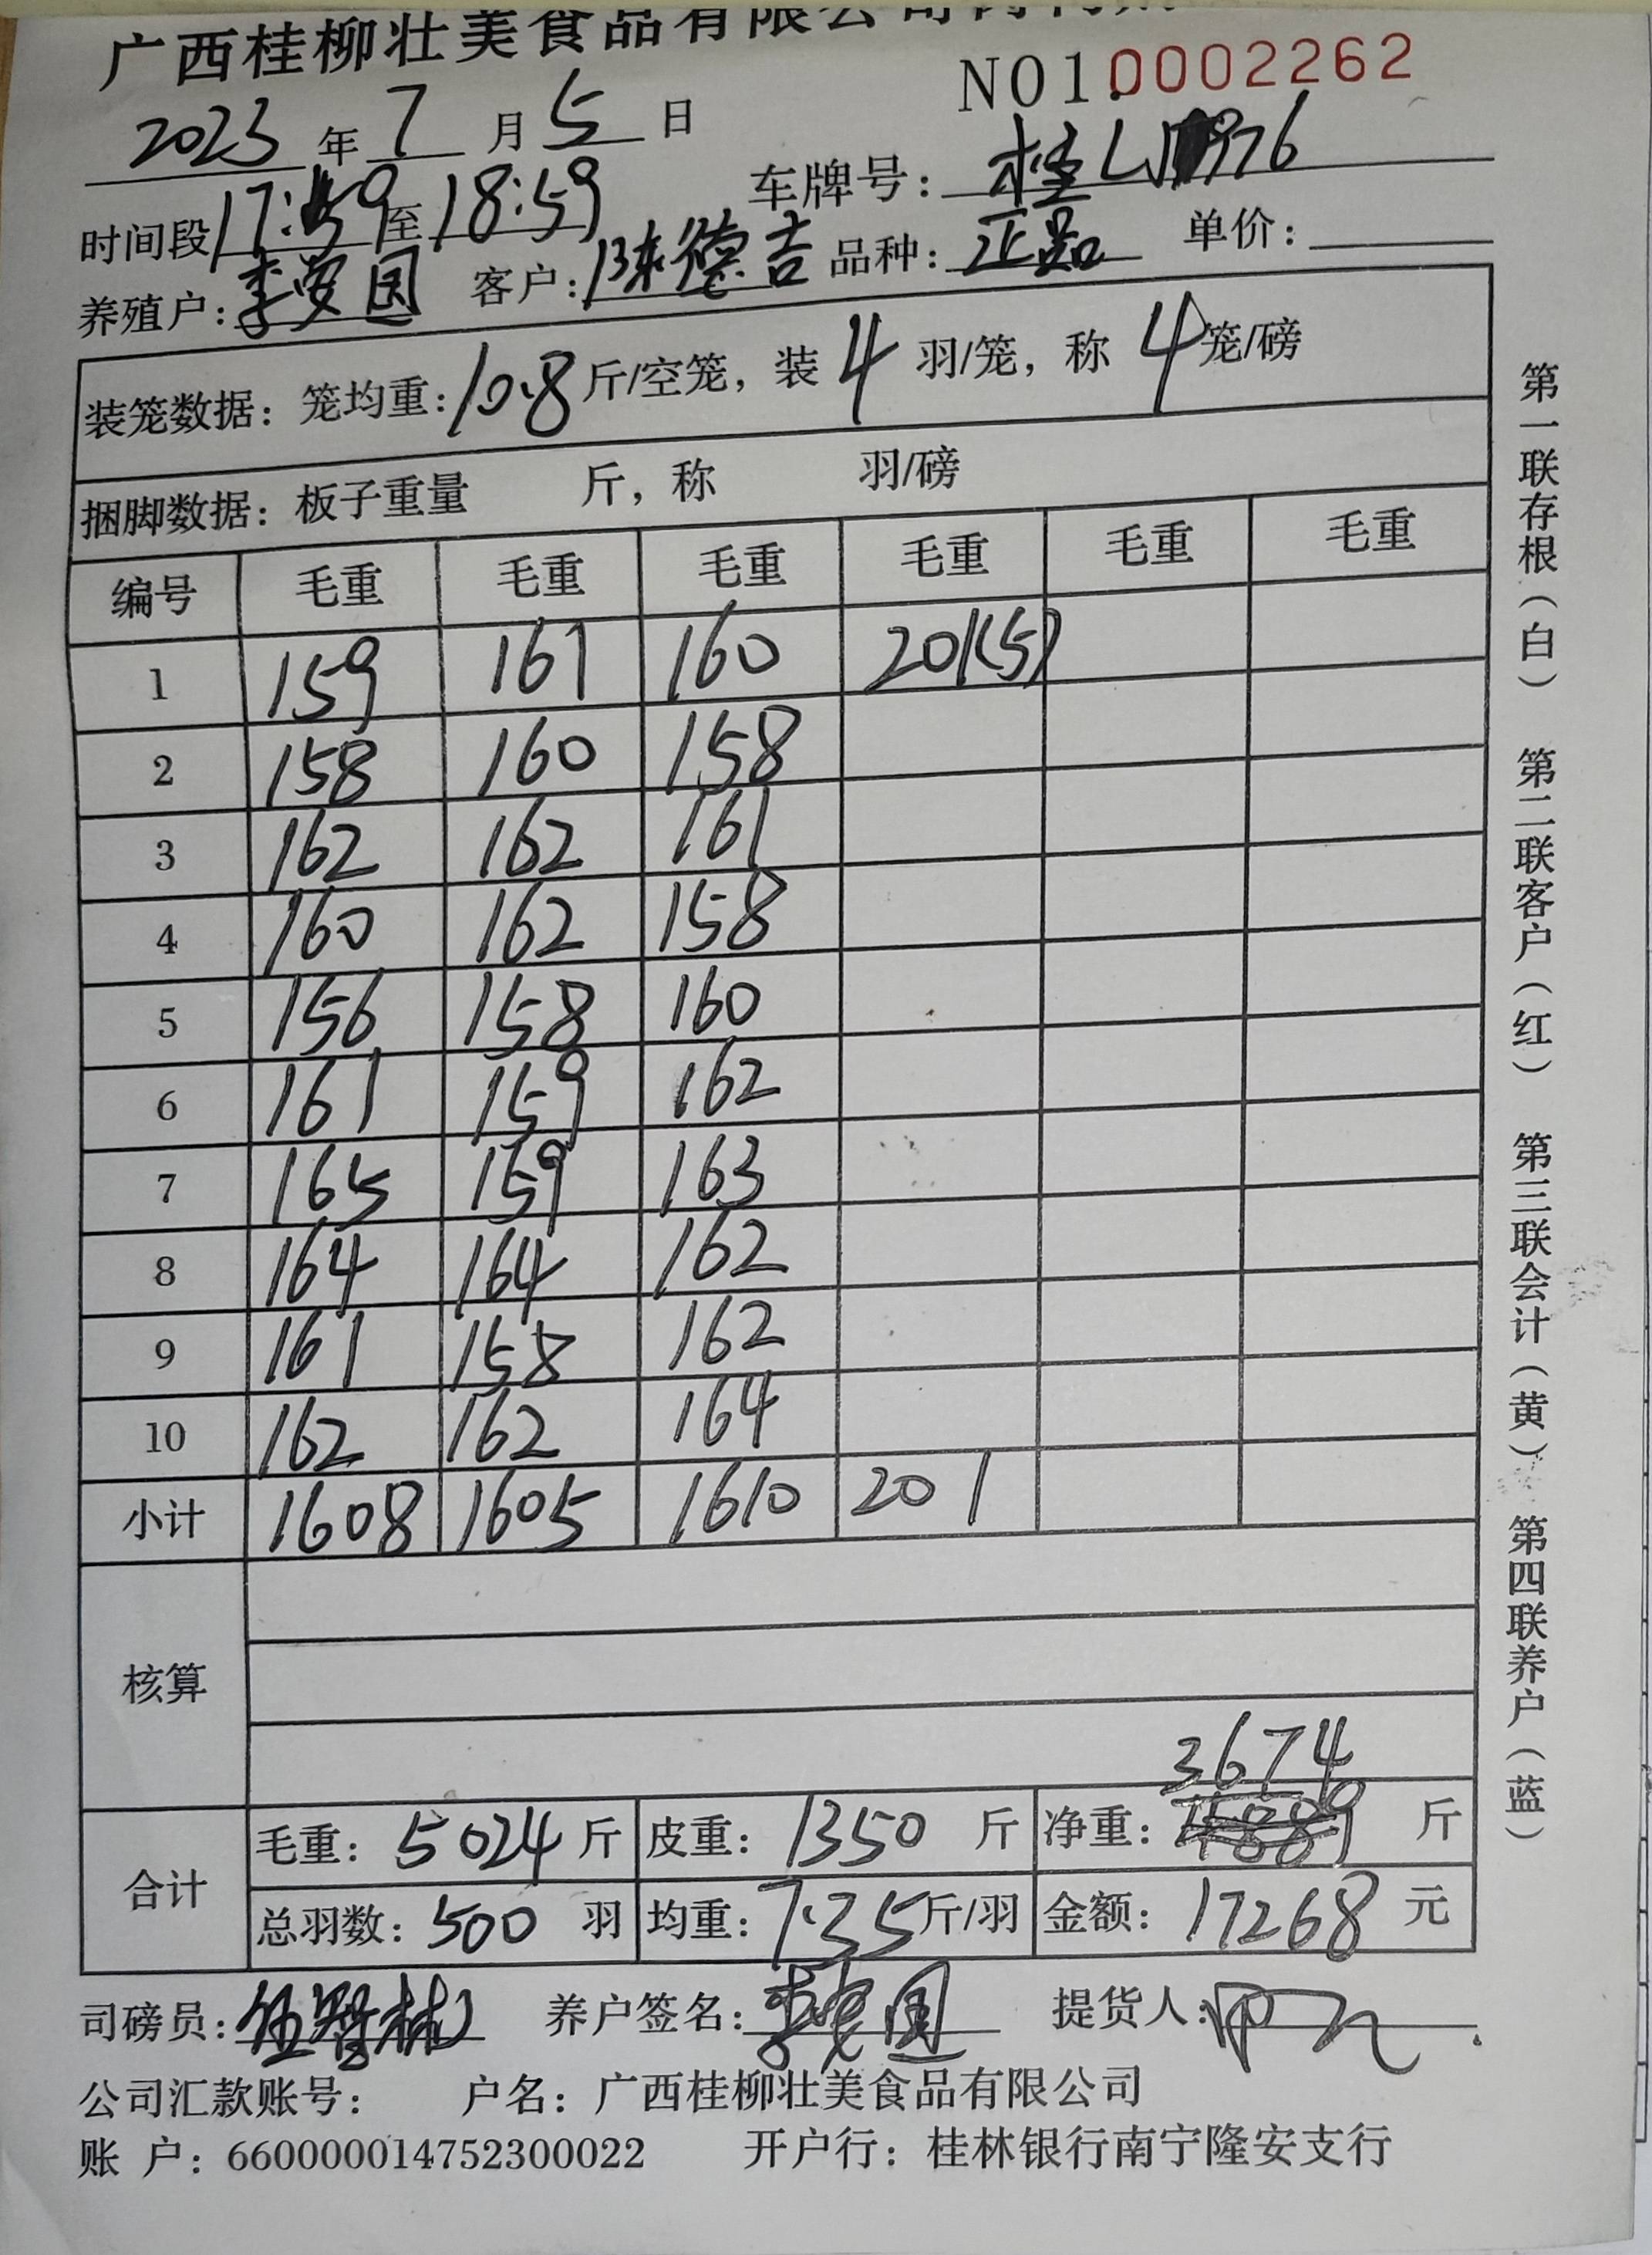 广西桂柳壮美食品有限公司
NO1.0002262
2023年7月5日
时间段17:59至18:59 车牌号:桂L 976
养殖户:李 国 客户:陈德吉 品种:正品 单价:
装笼数据:笼均重:10.8斤/空笼,装4羽/笼,称4笼/磅
捆脚数据:板子重量 斤,称 羽/磅
编号 毛重 毛重 毛重 毛重 毛重 毛重
1 159 161 160 201(5)
2 158 160 158
3 162 162 161
4 160 162 158
5 156 158 160
6 161 159 162
7 165 159 163
8 164 164 162
9 161 158 162
10 162 162 164
小计 1608 1605 1610 201
核算
3674
合计 毛重:5024斤 皮重:1350斤 净重: 斤
总羽数:500羽 均重:7.35斤/羽 金额:17268元
司磅员:伍 林 养户签名:李 国 提货人:
公司汇款账号: 户名:广西桂柳壮美食品有限公司
账 户:660000014752300022 开户行:桂林银行南宁隆安支行
第一联存根(白) 第二联客户(红) 第三联会计(黄) 第四联养户(蓝)